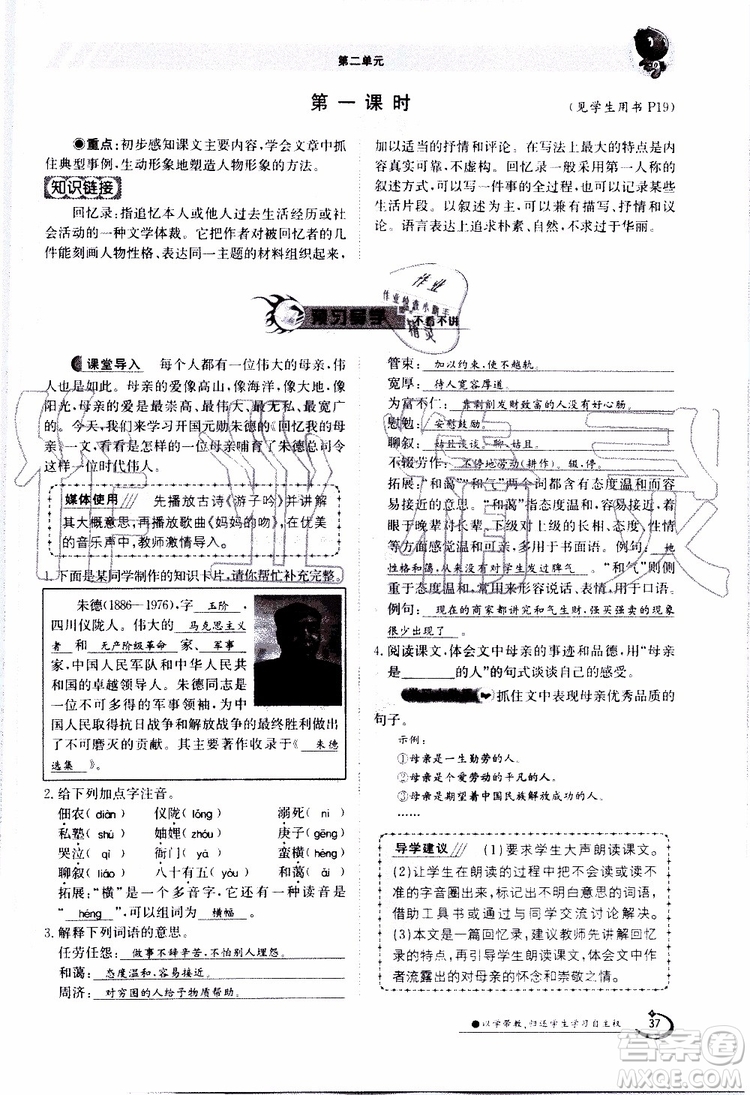 第二单元
第一课时
(见学生用书 P19)
●重点：初步感知课文主要内容，学会文章中抓
住典型事例，生动形象地塑造人物形象的方法。
知识链接
回忆录：指追忆本人或他人过去生活经历或社
会活动的一种文学体裁。它把作者被回忆者的几
件能刻画人物性格、表达同一主题的材料组织起来，
加以适当的抒情和评论。在写法上最大的特点是内
容真实可靠，感情真挚自然。一般采用第一人称的
叙述方式，可以写一件事的全过程，也可以记录某些
生活片段。以叙述为主，可以兼有描写、抒情和议
论。语言表达上追求朴素、自然，而不过于华丽。
预习导学
不看不讲
课堂导入 每个人都有一位伟大的母亲，伟人
也是如此。母亲的爱像高山，像海洋，像大地，像
阳光，母亲的爱是最崇高、最伟大、最无私、最宽广
的。今天，我们来学习开国元勋朱德的《回忆我的母
亲》一文，看看是怎样的一位母亲哺育了朱德总司令
这样一位时代伟人。
媒体使用 先播放古诗《游子吟》并讲解
其大概意思，再播放歌曲《妈妈的吻》，在优美
的音乐声中，教师激情导入。
1. 下面是某同学制作的知识卡片，请你帮忙补充完整。
朱德(1886—1976)，字 玉阶 ，
四川仪陇人。伟大的 马克思主义
者 和 无产阶级革命 家、 军事
家，中国人民军队和中华人民共和国
的卓越领导人。朱德同志是一位
杰出的军事领袖，为中国人民
取得抗日战争和解放战争的最终胜利立下
了不可磨灭的贡献。其主要著作有《 朱德
选集 》。
2. 给下列加点字注音。
佃农( diàn ) 仪陇( lǒng ) 溺死( nì )
私塾( shú ) 妯娌( zhóu ) 庚子( gēng )
哭泣( qì ) 衙门( yá ) 蛮横( hèng )
聊叙( liáo ) 八十有五( yòu ) 不辍( chuò )
拓展：“横”是一个多音字，它还读音是
“ héng ”，可以组词为 横幅 。
3. 解释下列词语的意思。
任劳任怨： 做事不辞辛苦，不怕别人埋怨。
和蔼： 态度温和，容易接近。
周济： 对穷困的人给予物质帮助。
管束： 加以约束，使不越轨。
宽厚： 待人宽容厚道。
为富不仁： 靠剥削发财致富的人没有好心肠。
慰勉： 安慰勉励。
聊叙： 姑且谈谈。聊，姑且。
不辍劳作： 不停地劳动(耕作)。辍，停止。
拓展：“和蔼”和“和气”都可以表示态度温和，容
易接近的意思。“和蔼”的内容多指态度温和，着
眼于晚辈讨长辈、下级对上级的长相、态度、性
情、声音等，多用于书面语。例句： 她
性格和蔼，从没有对学生发过脾气 。“和气”则侧
重于态度温和，常用来形容说话、表情，用于口语。
例句： 现在的商家都讲究和气生财，强买强卖的现象
很少出现了 。
4. 阅读课文，体会文中母亲的事迹和品德，用“母亲
是______的人”的句式谈谈自己的感受。
抓住文中表现母亲优秀品质的
句子。
示例：
①母亲是一生勤劳的人。
②母亲是个爱劳动的平凡的人。
③母亲是期望着中国民族解放成功的人。
……
导学建议 (1)要求学生大声朗读课文。
(2)让学生在朗读的过程中把不会读或读不
准的字音圈出来，标记出不明白意思的词语，
借助工具书或与同学交流加以解决。
(3)本文是一篇回忆录，建议教师先讲解回忆
录的特点，再引导学生朗读课文，体会文中作
者流露出的对母亲的怀念和崇敬之情。
●以学带教，归还学生学习自主权
37
答案圈
MXQE.COM